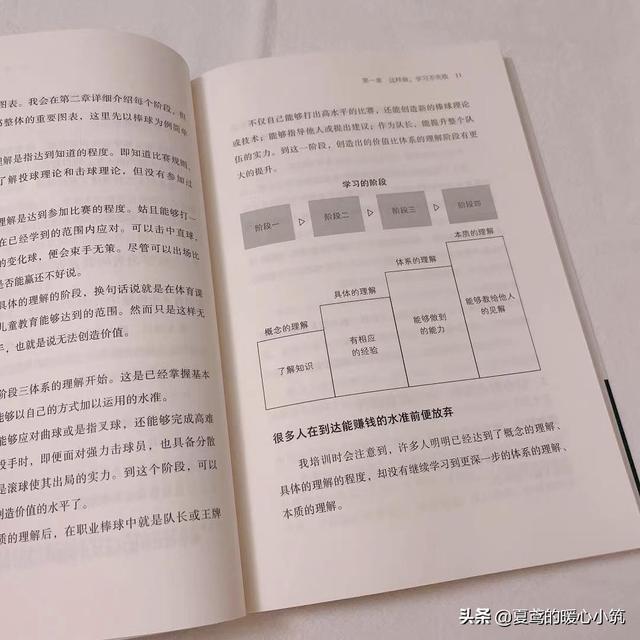 图表。我会在第二章详细介绍每个阶段，但
整体的重要图表，这里先以棒球为例简单
理解是指达到知道的程度。即知道比赛规则、
了解投球理论和击球理论，但没有参加过
理解是达到参加比赛的程度。姑且能够打一
在已经学到的范围内应对。可以击中直球，
的变化球，便会束手无策。尽管可以出场比
是否能赢还不好说。
具体的理解的阶段，换句话说就是在体育课
儿童教育能够达到的范围。然而只是这样无
手，也就是说无法创造价值。
阶段三体系的理解开始。这是已经掌握基本
能够以自己的方式加以运用的水准。
能够应对曲球或是指叉球，还能够完成高难
投手时，即便面对强力击球员，也具备分散
是滚球使其出局的实力。到这个阶段，可以
创造价值的水平了。
质的理解后，在职业棒球中就是队长或王牌
第一章 这样做，学习不失败 11
不仅自己能够打出高水平的比赛，还能创造新的棒球理论
或技术；能够指导他人或提出建议；作为队长，能提升整个队
伍的实力。到这一阶段，创造出的价值比体系的理解阶段有更
大的提升。
学习的阶段
阶段一 阶段二 阶段三 阶段四
概念的理解 具体的理解 体系的理解 本质的理解
了解知识
有相应
的经验
能够做到
的能力
能够教给他人
的见解
很多人在到达能赚钱的水准前便放弃
我培训时会注意到，许多人明明已经达到了概念的理解、
具体的理解的程度，却没有继续学习到更深一步的体系的理解、
本质的理解。
头条 @夏鸢的暖心小筑